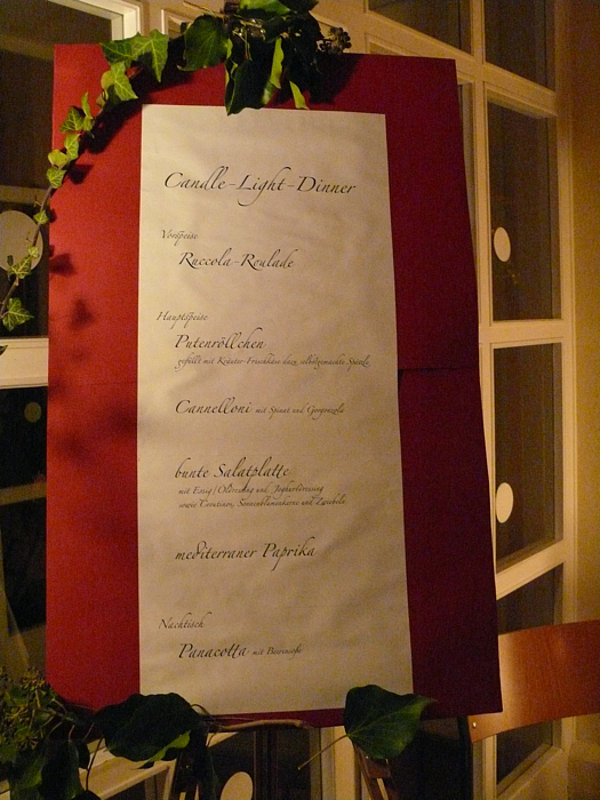 Candle-Light-Dinner
Vorspeise
Ruccola-Roulade
Hauptspeise
Putenröllchen
gefüllt mit Kräuter-Frischkäse dazu selbstgemachte Spätzle
Cannelloni mit Spinat und Gorgonzola
bunte Salatplatte
mit Essig/Öldressing und Joghurtdressing
sowie Croutinos, Sonnenblumenkerne und Zwiebeln
mediterraner Paprika
Nachtisch
Panacotta mit Beerensoße